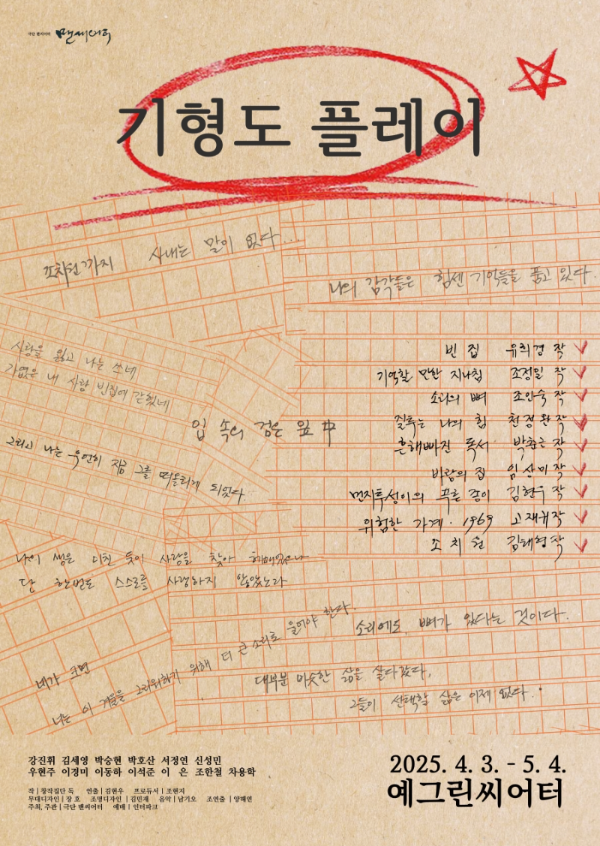 극단 맨씨어터 맨씨어터
기형도 플레이
조치원까지 사내는 말이 없다...
나의 감각들은 힘센 기억들을 품고 있다.
사랑을 잃고 나는 쓰네
가엾은 내 사랑 빈집에 갇혔네
빈 집 유희경 작
기억할 만한 지나침 조정일 작
소리의 뼈 조인숙 작
질투는 나의 힘 천정완 작
흔해빠진 독서 박춘근 작
바람의 집 임상미 작
먼지투성이의 푸른 종이 김현우 작
위험한 가계·1969 고재귀 작
조치원 김태형 작
입 속의 검은 잎 中
그리고 나는 우연히 지금 그를 떠올리게 되었다
나의 생은 미친 듯이 사랑을 찾아 헤매었으나
단 한번도 스스로를 사랑하지 않았노라
네가 크면
너는 이 겨울을 그리워하기 위해 더 큰 소리로 울어야 한다.
소리에도 뼈가 있다는 것이다.
대부분 비슷한 삶을 살다갔다.
그들이 선택할 삶은 이제 없다.
강진휘 김세영 박승현 박호산 서정연 신성민
우현주 이경미 이동하 이석준 이 은 조한철 차용학
작 | 창작집단 독 연출 | 김현우 프로듀서 | 조현지
무대디자인 | 장 호 조명디자인 | 김민재 음악 | 남기오 조연출 | 양해연
주최, 주관 | 극단 맨씨어터 예매 | 인터파크
2025. 4. 3. - 5. 4.
예그린씨어터